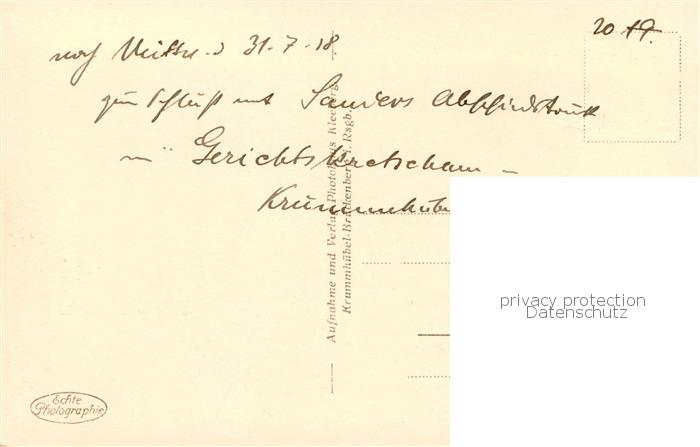 20 19.
31-7-18.
zum Schluß mit Sanders Abschiedstrunk
Gerichtskretscham –
Krummhübel
Aufnahme und Verlag Photohaus Kleeberg
Krummhübel-Brückenberg i. Rsgb.
privacy protection
Datenschutz
Echte
Photographie